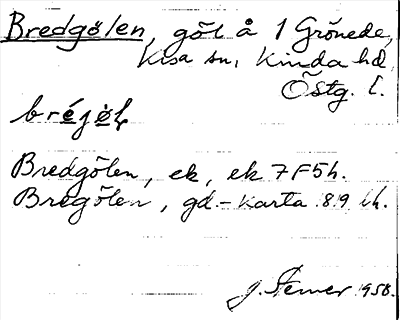 Bredgölen, göl å 1 Grönede,
Kisa sn, Kinda hd,
Östg. l.
brégøļ
Bredgölen, ek, ek 7F5h.
Bregölen, gd.-karta 89 lh.
J. Stemer 1958.